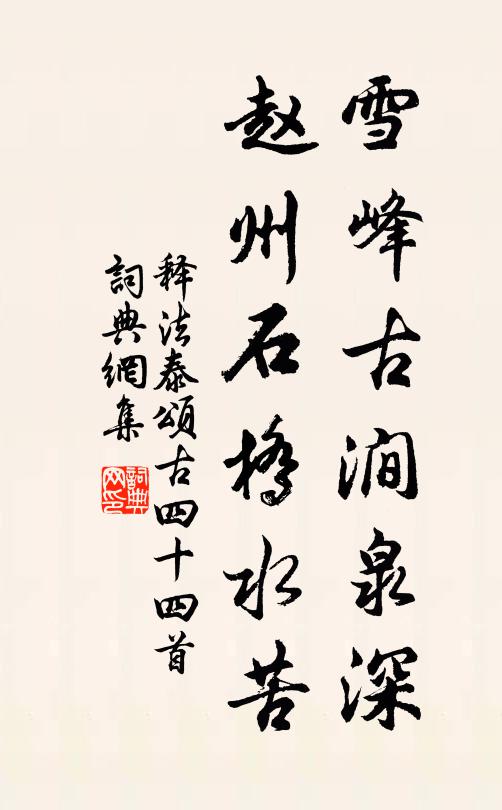 雪峰古澗泉深
赵州石橋水苦
释法泰頌古四十四首
詞典網集
詞典网印